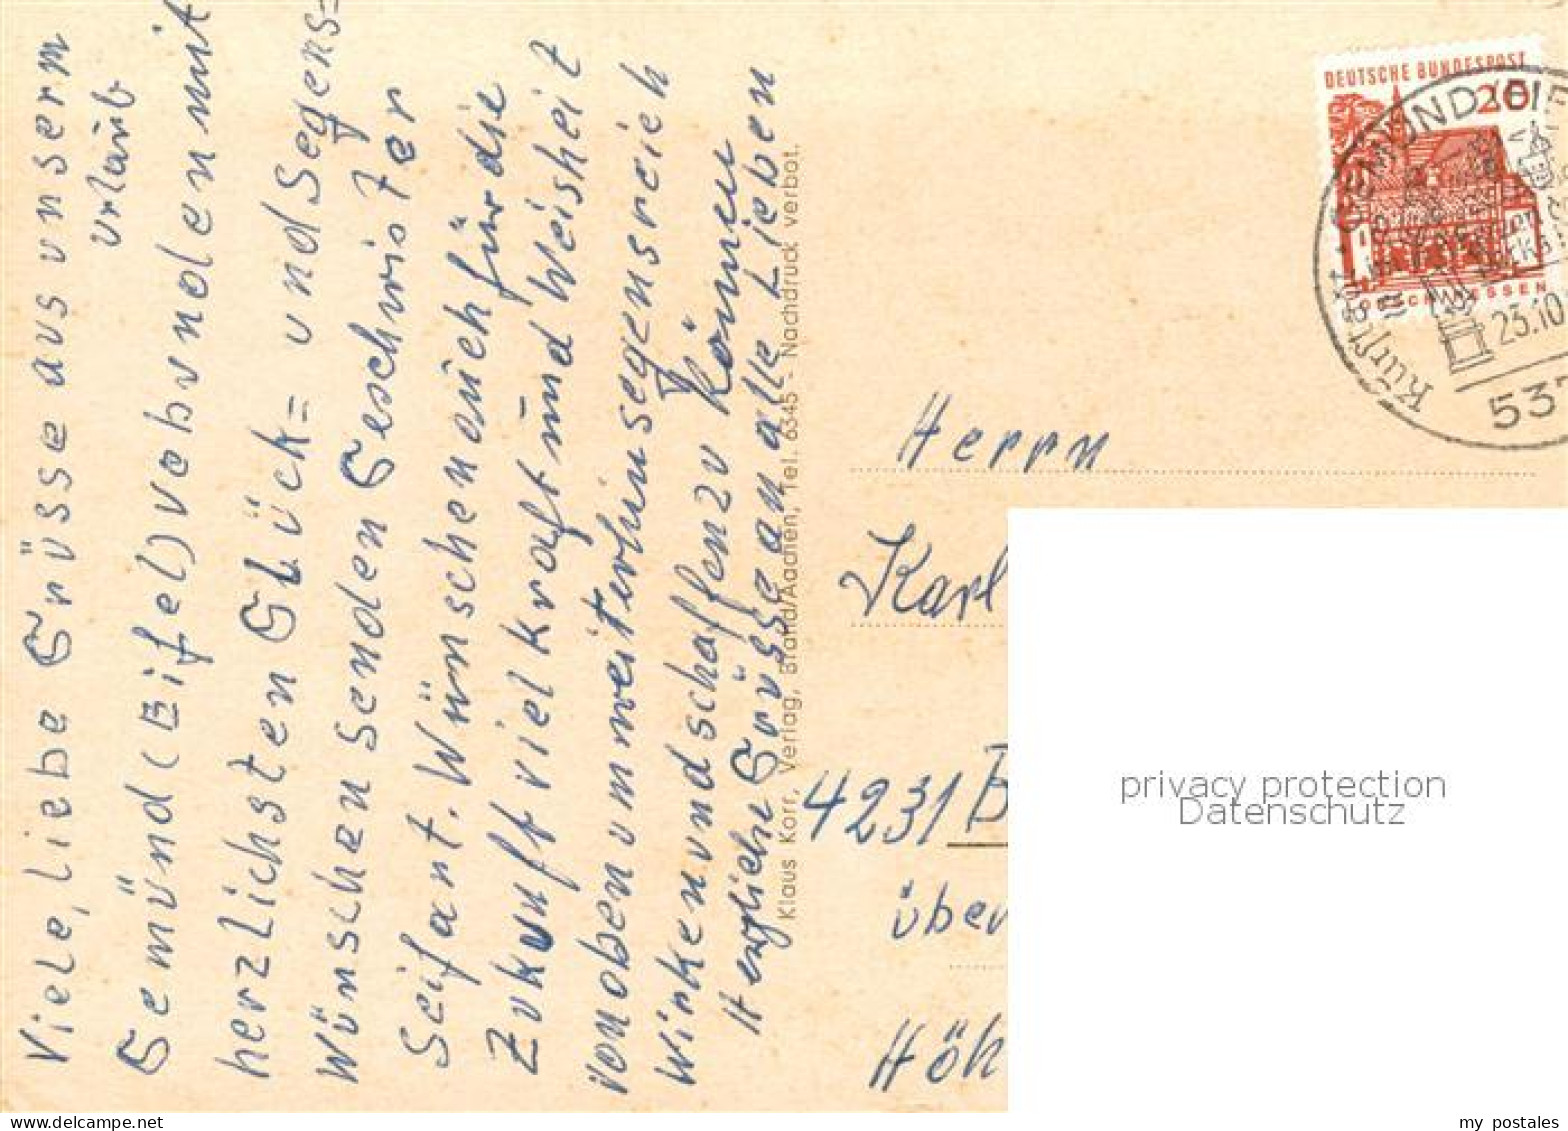 Viele, liebe Grüsse aus unserm
Urlaub
Gemünd (Eifel) vebunden mit
herzlichsten Glück= und Segens=
wünschen senden Geschwister
Seifart. Wünschen auch für die
Zukunft viel Kraft und Weisheit
von oben um weiterhin segensreich
wirken und schaffen zu können
Herzliche Grüsse an alle Lieben
Klaus Korr, Verlag, Brand/Aachen, Tel. 6345 - Nachdruck verbot.
DEUTSCHE BUNDESPOST
20
GEMÜND (EIFE
23.10
537
Herrn
Karl
4231 B
über
Höh
privacy protection
Datenschutz
delcampe.net
my_postales